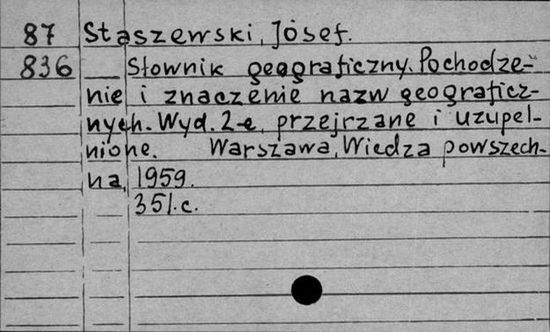 87 Staszewski, Józef.
836 Słownik geograficzny. Pochodze-
nie i znaczenie nazw geograficz-
nych. Wyd. 2-e, przejrzane i uzupeł-
nione. Warszawa, Wiedza powszech-
na, 1959.
351. c.